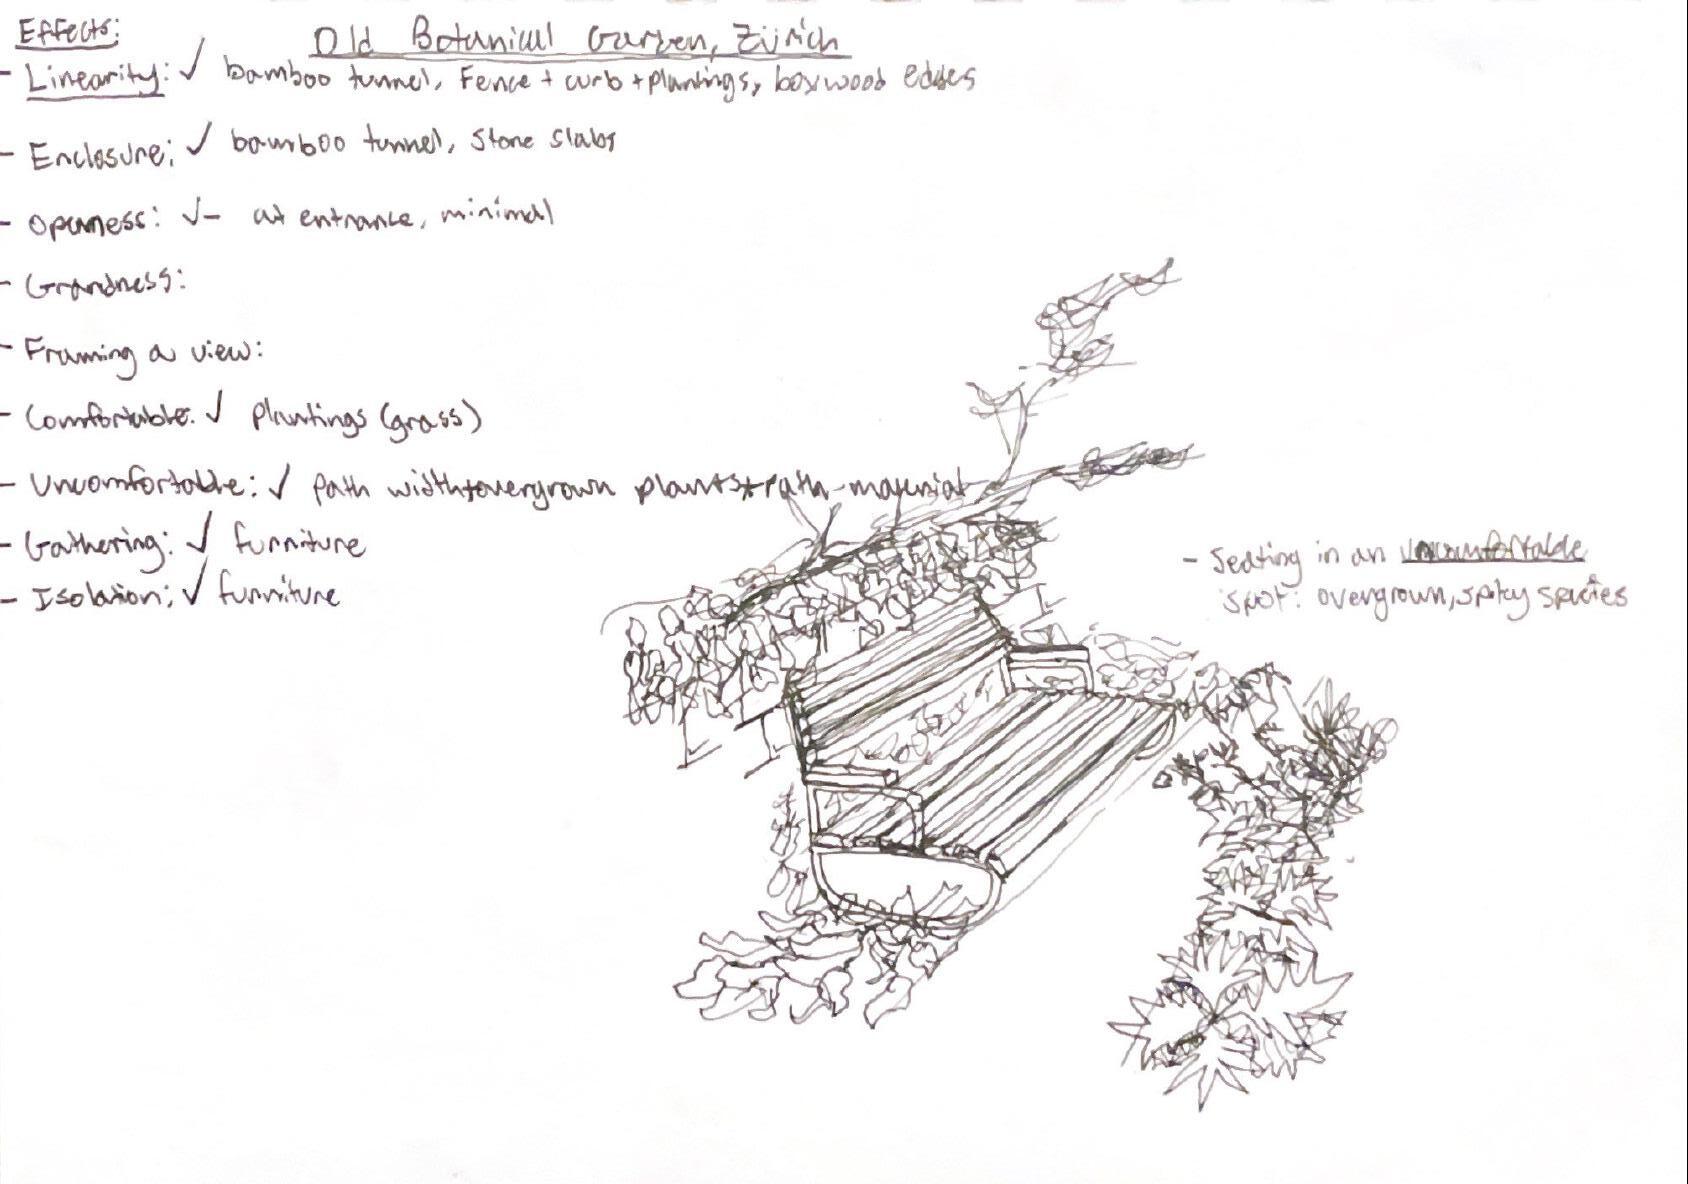 Effects:
Old Botanical Garden, Zürich
- Linearity: ✓ bamboo tunnel, Fence + curb + plantings, boxwood edges
- Enclosure: ✓ bamboo tunnel, stone slabs
- Openness: ✓- at entrance, minimal
- Grandness:
- Framing a view:
- Comfortable: ✓ plantings (grass)
- Uncomfortable: ✓ path width + overgrown plants + path material
- Gathering: ✓ furniture
- Isolation: ✓ furniture
- Seating in an uncomfortable
spot: overgrown, spiky species